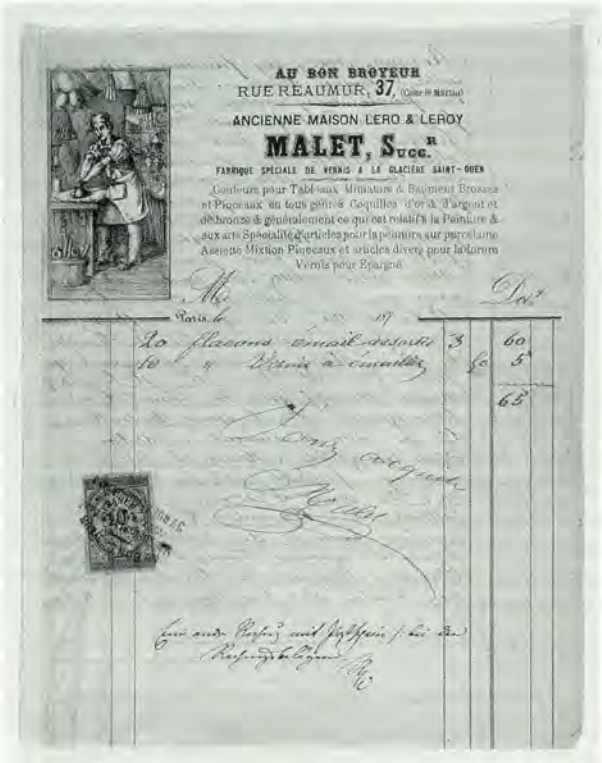 AU BON BROYEUR
RUE RÉAUMUR, 37, (Cour St Martin)
ANCIENNE MAISON LERO & LEROY
MALET, SUCC.R
FABRIQUE SPÉCIALE DE VERNIS A LA GLACIÈRE SAINT-OUEN
Couleurs pour Tableaux Miniature & Bâtiment Brosses
et Pinceaux en tous genres Coquilles d'or & d'argent et
de bronze & généralement ce qui est relatif à la Peinture &
aux arts Spécialité d'articles pour la peinture sur porcelaine
Assiette Mixtion Pinceaux et articles divers pour la dorure
Vernis pour Epargne
M
Doit
Paris, le 187
20 flacons émail assortis 3 60
10 " Vernis à émailler 50 5
65
Pour acquit
Malet
10
mit